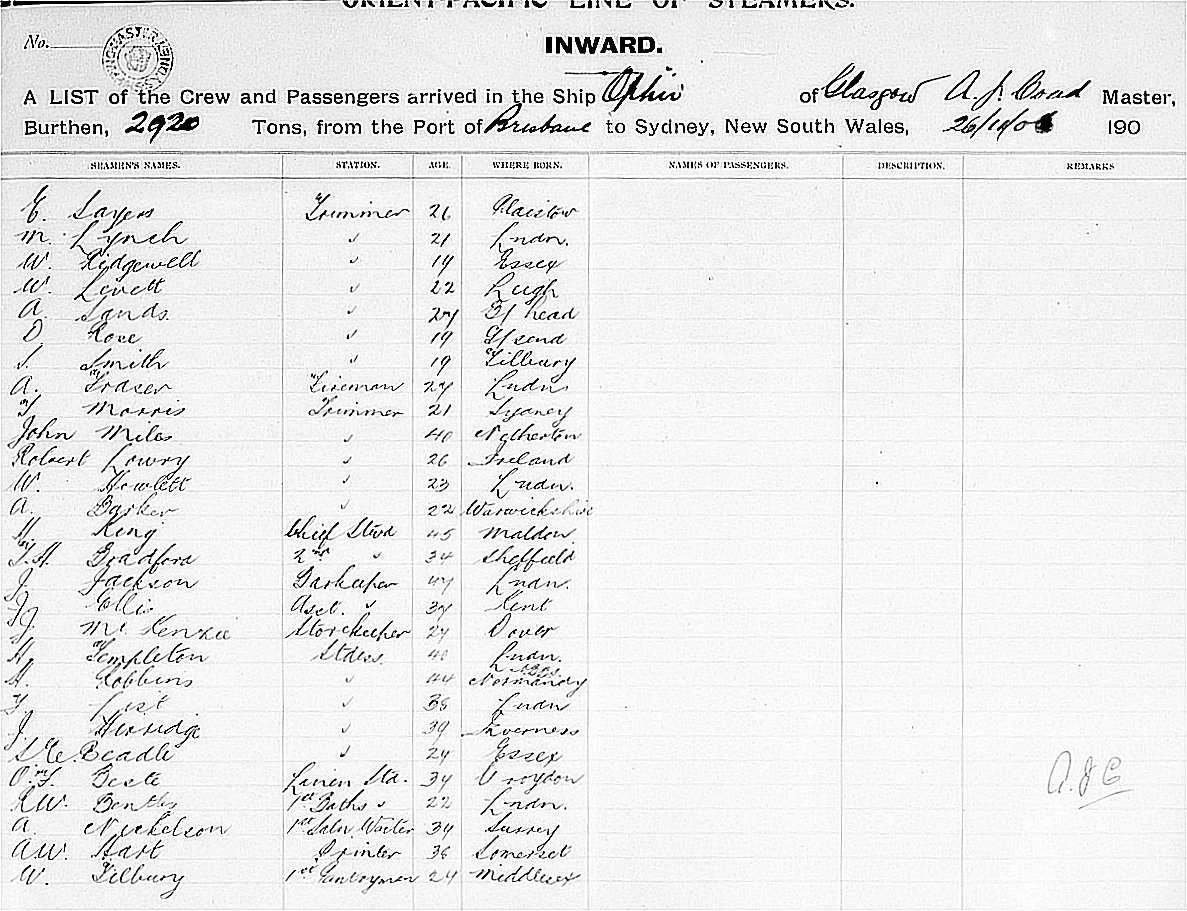 ORIENT-PACIFIC LINE OF STEAMERS.
No.
INWARD.
A LIST of the Crew and Passengers arrived in the Ship Ophir of Glasgow A. J. Coad Master,
Burthen, 2920 Tons, from the Port of Brisbane to Sydney, New South Wales, 190
SEAMEN'S NAMES. STATION. AGE. WHERE BORN. NAMES OF PASSENGERS. DESCRIPTION. REMARKS
E. Sayers Trimmer 26 Plaistow
M. Lynch " 21 Lndn.
W. Ridgewell " 19 Essex
W. Levett " 22 Leigh
A. Sands " 27 B/head
D. Rose " 19 G/send
S. Smith " 19 Tilbury
A. Fraser Fireman 27 Lndn.
T. Morris Trimmer 21 Sydney
John Miles " 40 Netherton
Robert Lowry " 26 Ireland
W. Howlett " 23 Lndn.
A. Barker " 22 Warwickshire
Hy King Chief Stwd 45 Maldon
T.H. Bradford 2nd " 34 Sheffield
J. Jackson Barkeeper 47 Lndn.
J. Ellis Asst. " 37 Kent
J. McKenzie Storekeeper 27 Dover
H. Templeton Stdess. 40 Lndn.
H. Robbins " 44 Normandy
T. List " 38 Lndn
J. Herridge " 39 Inverness
S.E. Beadle " 27 Essex
O.F. Beste Linen Std. 34 Croydon
R.W. 1st Baths " 22 Lndn.
A. Nickelson 1st Saln Waiter 34 Surrey
A.W. Hart Printer 36 Somerset
W. Tilbury 1st Pantryman 24 Middlesex
A.J.C